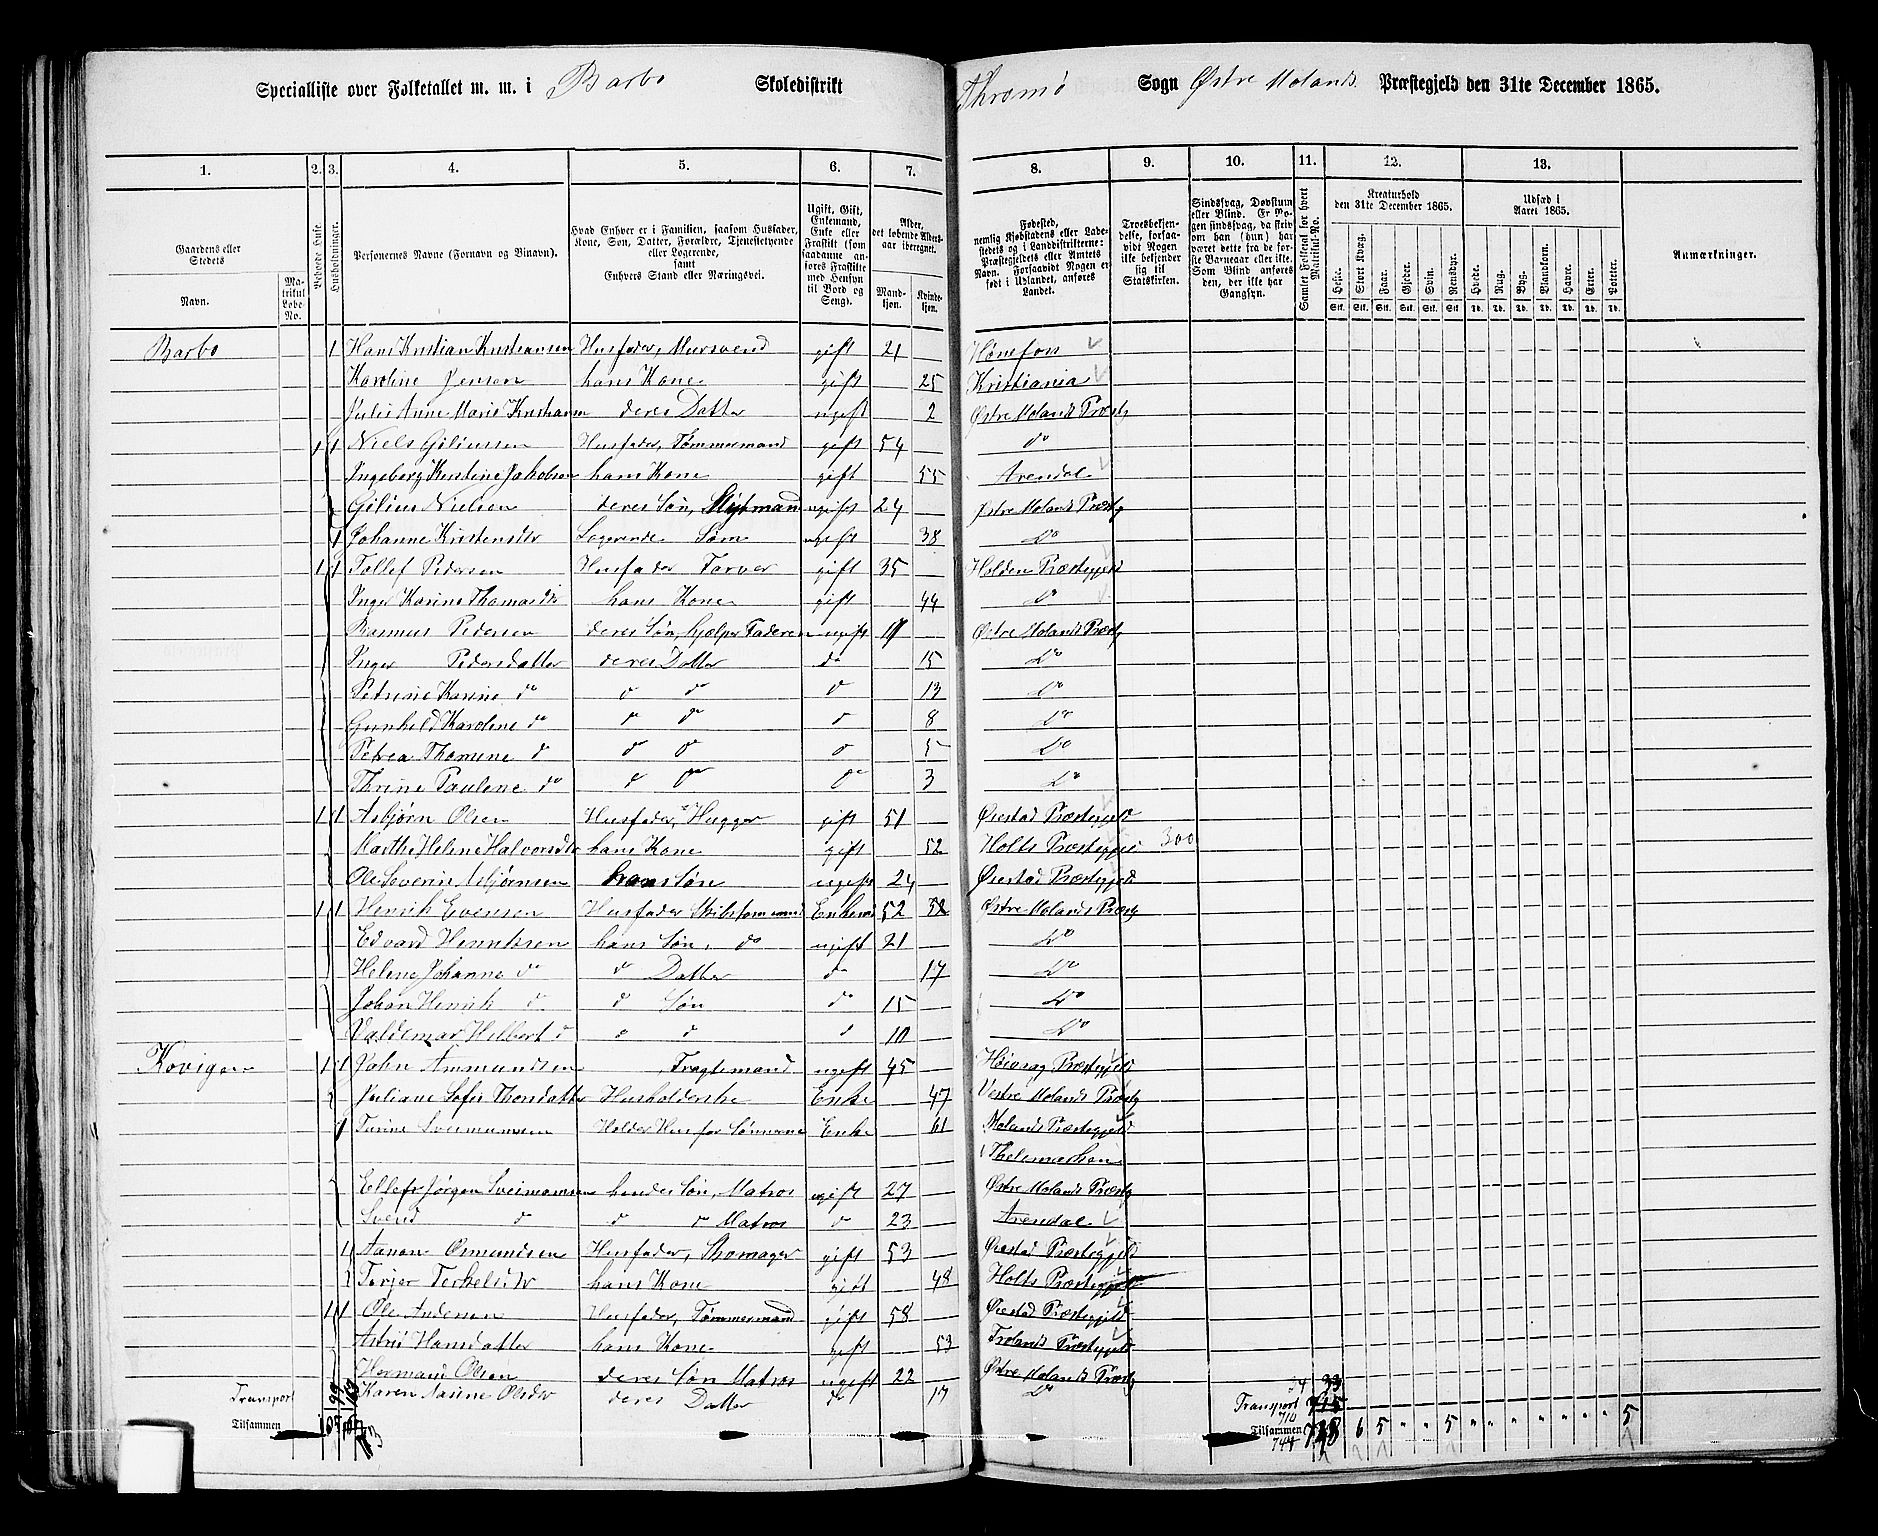 Specialliste over Folketallet m. m. i Barbo Skoledistrikt Thromø Sogn Østre Molands Præstegjeld den 31te December 1865.
1. 2. 3. 4. 5. 6. 7. 8. 9. 10. 11. 12. 13.
Gaardens eller Stedets Navn.
Matrikul Løbe-No.
Beboede Huse.
Husholdninger.
Personernes Navne (Fornavn og Binavn).
Hvad Enhver er i Familien, saasom Husfader, Kone, Søn, Datter, Forældre, Tjenestetyende eller Logerende, samt Enhvers Stand eller Næringsvei.
Ugift, Gift, Enkemand, Enke eller Frastilt (som saadanne anføres Frastilte med Hensyn til Bord og Seng).
Alder, det løbende Alders-aar iberegnet.
Mandkjøn. Kvindekjøn.
Fødested, nemlig Kjøbstadens eller Ladestedets og i Landdistrikterne: Præstegjeldets eller Amtets Navn. Forsaavidt Nogen er født i Udlandet, anføres Landet.
Troesbekjendelse, forsaavidt Nogen ikke bekjender sig til Statskirken.
Sindssvag, Døvstum eller Blind. Er Nogen sindssvag, da skriv om han (hun) har været dette fra de første Barneaar eller ikke. Som Blind anføres den, der ikke har Gangsyn.
Samlet Folketal for hvert Matrikul-No.
Kreaturhold den 31te December 1865.
Heste. Stort Kvæg. Faar. Gjeder. Svin. Rensdyr.
Udsæd i Aaret 1865.
Hvede. Rug. Byg. Blandkorn. Havre. Erter. Poteter.
Anmærkninger.
Stk. Stk. Stk. Stk. Stk. Stk. Td. Td. Td. Td. Td. Td. Td.
Barbo 1 Hans Kristian Kristiansen Husfader, Mursvend gift 21 Hønefos
Karoline Jensen hans Kone gift 25 Kristiania
Julie Anne Marie Kristiansen deres Datter ugift 2 Østre Molands Præstg
1 1 Niels Giliussen Husfader, Tømmermand gift 54 do
Ingeborg Kirstine Jakobsen hans Kone gift 55 Arendal
Gilius Nielsen deres Søn, Styrmand ugift 24 Østre Molands Præstg
1 Johanne Kristensdtr Logerende Søm ugift 38 Do
1 1 Tollef Pedersen Husfader Farver gift 35 Holden Præstegjeld
Inger Karine Thomasdtr hans Kone gift 44 Do
Rasmus Pedersen deres Søn, hjelper Faderen ugift 17 Østre Molands Præstg
Inger Pedersdatter deres Datter do 15 Do
Petrine Karine do d d d 13 Do
Gunhild Karoline do d d d 8 Do
Petrea Thomine d d d d 5 Do
Thrine Pauline do d do do 3 Do
1 1 Asbjørn Olsen Husfader, Hugger gift 51 Øiestad Præstegjeld
Marthe Helene Halvorsdtr hans Kone gift 52 Holts Præstegjeld 300
Ole Severin Asbjørnsen hans Søn ugift 24 Øiestad Præstegjeld
1 1 Henrik Evensen Husfader Skibstømmermand Enkemd 52 52 Østre Molands Præstg
Edvard Henriksen hans Søn, do ugift 21 Do
Helene Johanne do d Datter do 17 Do
Johan Henrik d d Søn do 15 Do
Valdemar Hilbert d d d d 10 Do
Kovigen 1 1 John Ammundsen Fragtemand ugift 45 Høivaag Præstegjeld
Juliane Sofie Thorsdatter Husholderske Enke 47 Vestre Molands Præstg
1 Turine Sveinungsen Holder Hus for Sønnerne Enke 61 Molands Præstegjeld
Thelemarken
Ellef Jørgen Sveinungsen hendes Søn, Matros ugift 27 Østre Molands Præstg
Svend d d d Matros d 23 Arendal
1 Aanon Osmundsen Husfader, Skomager gift 53 Øiestad Præstegjeld
Torjer Terkelsdtr hans Kone gift 48 Holts Præstegjeld
1 1 Ole Andersen Husfader, Tømmermand gift 58 Øiestad Præstegjeld
Astrid Hansdatter hans Kone gift 53 Frolands Præstegjeld
Hermand Olsen deres Søn Matros ugift 22 Østre Molands Præstg
Karen Naline Olsdtr deres Datter do 17 Do
Transport 99 34 33 Transport 715 710
Tilsammen 105 Tilsammen 744 748 6 5 " " 5 " " " " " " " 5